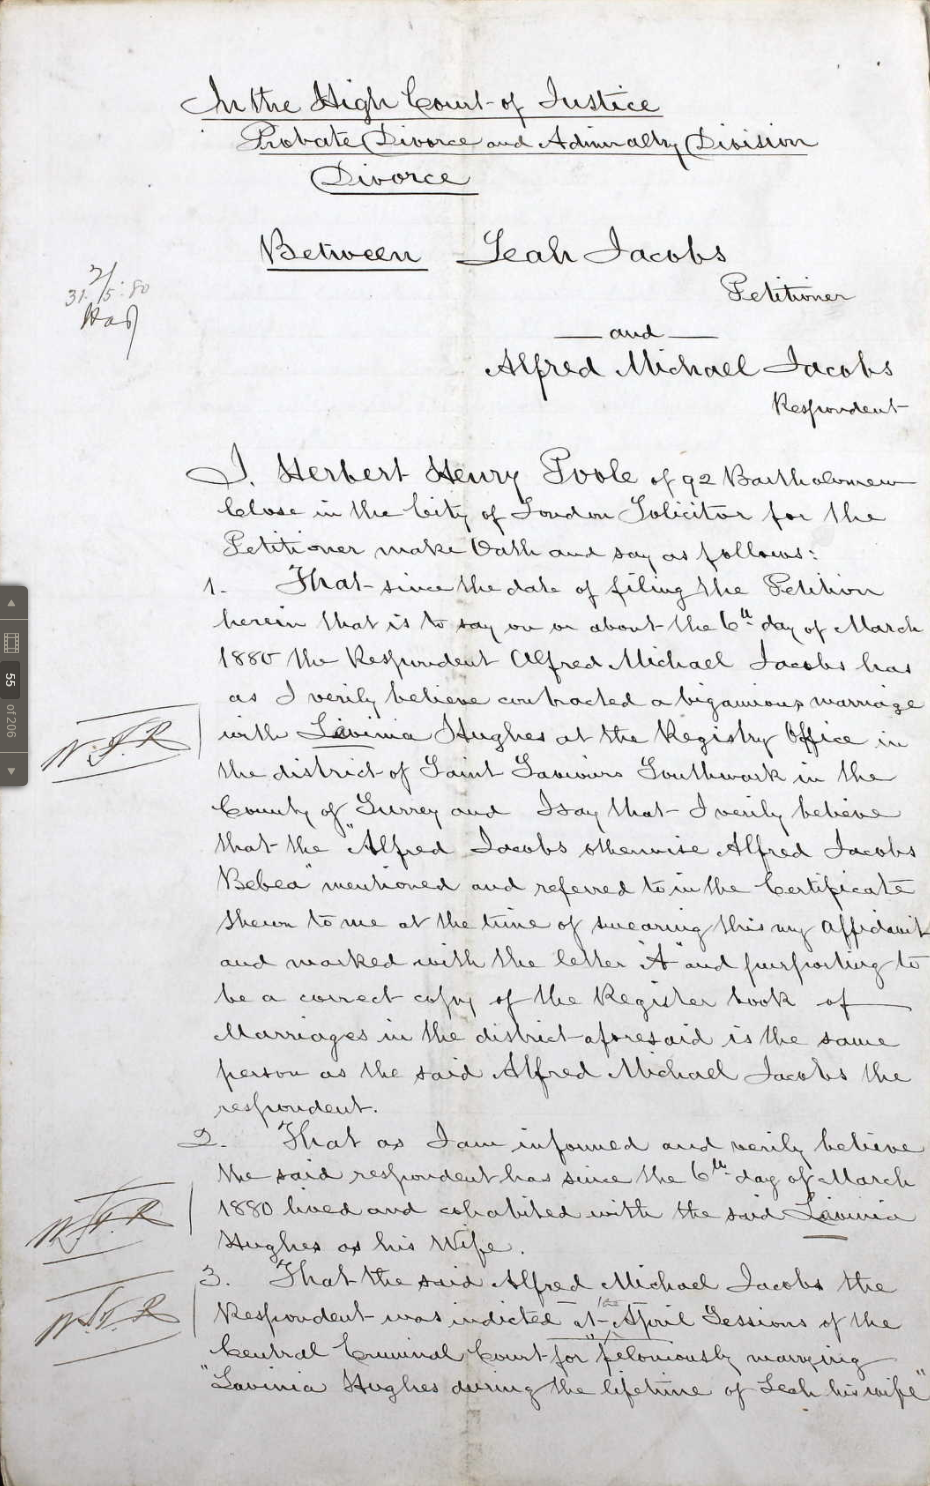 In the High Court of Justice
Probate Divorce and Admiralty Division
Divorce
Between Leah Jacobs
Petitioner
and
Alfred Michael Jacobs
Respondent
31/5:80
I, Herbert Henry Poole of 92 Bartholomew
Close in the City of London Solicitor for the
Petitioner make Oath and say as follows:
1. That since the date of filing the Petition
herein that is to say on or about the 6th day of March
1880 the Respondent Alfred Michael Jacobs has
as I verily believe contracted a bigamious marriage
with Lavinia Hughes at the Registry Office in
the district of Saint Saviours Southwark in the
County of Surrey and I say that I verily believe
that the "Alfred Jacobs otherwise Alfred Jacobs
Bebea" mentioned and referred to in the Certificate
shewn to me at the time of swearing this my affidavit
and marked with the letter "A" and purporting to
be a correct copy of the Register book of
Marriages in the district aforesaid is the same
person as the said Alfred Michael Jacobs the
respondent.
2. That as I am informed and verily believe
the said respondent has since the 6th day of March
1880 lived and cohabited with the said Lavinia
Hughes as his Wife.
3. That the said Alfred Michael Jacobs the
Respondent was indicted at the April Sessions of the
Central Criminal Court for "feloniously marrying
"Lavinia Hughes during the lifetime of Leah his wife"
55
of 206